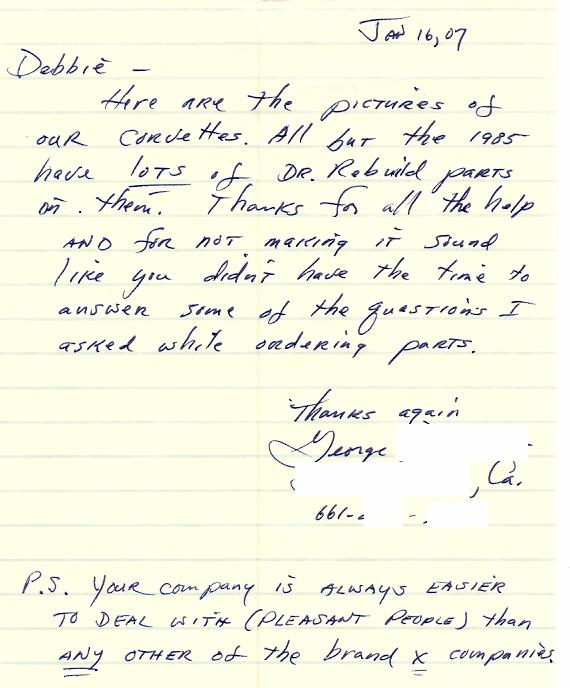 JAN 16, 07
Debbie –
Here are the pictures of
our Corvettes. All but the 1985
have lots of DR. Rebuild parts
on . them. Thanks for all the help
AND for not making it sound
like you didn't have the time to
answer some of the questions I
asked while ordering parts.
Thanks again
George
, Ca.
661-
P.S. Your company is ALWAYS EASIER
TO DEAL WITH (PLEASANT PEOPLE) than
ANY OTHER of the brand X companies.